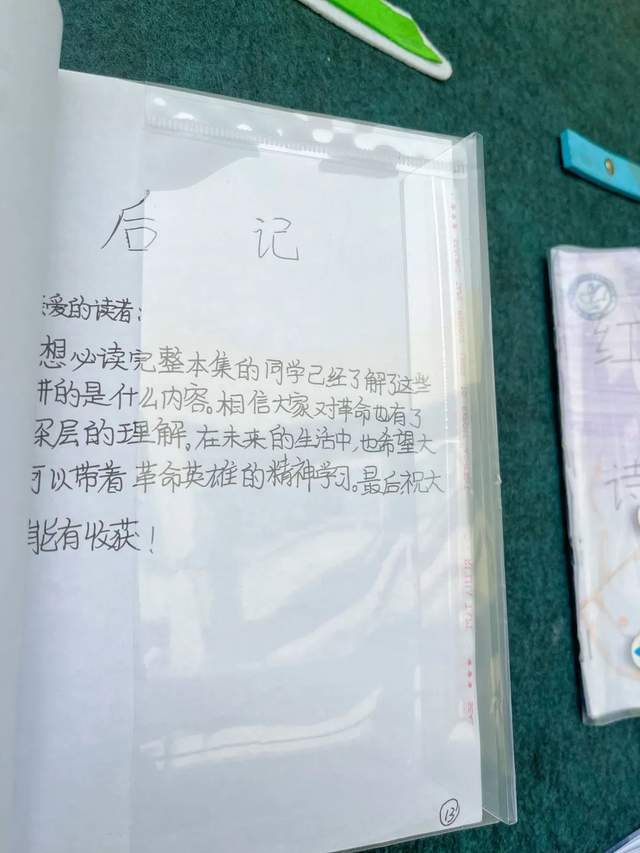 后 记
爱的读者：
想必读完整本集的同学已经了解了这些
的是什么内容。相信大家对革命也有了
深层的理解。在未来的生活中，也希望大
可以带着革命英雄的精神学习。最后祝大
能有收获！
13
红
诗